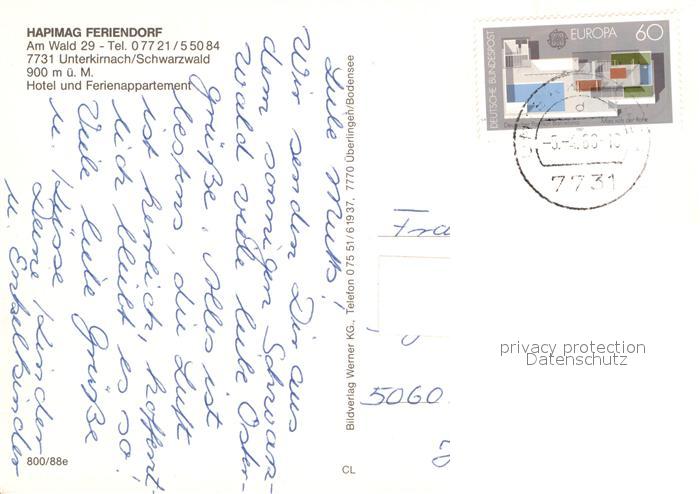 HAPIMAG FERIENDORF
Am Wald 29 - Tel. 0 77 21 / 5 50 84
7731 Unterkirnach/Schwarzwald
900 m ü. M.
Hotel und Ferienappartement
Liebe Mutti!
Wir senden Dir aus
dem sonnigen Schwarz-
wald viele liebe Oster-
grüße. Alles ist
bestens, die Luft
ist herrlich, hoffent-
lich bleibt es so!
Viele liebe Grüße
u. Küsse
Deine Kinder
u. Enkelkinder
800/88e
Bildverlag Werner KG., Telefon 0 75 51 / 6 19 37, 7770 Überlingen/Bodensee
CL
DEUTSCHE BUNDESPOST
EUROPA 60
7731
Fra
5060
privacy protection
Datenschutz